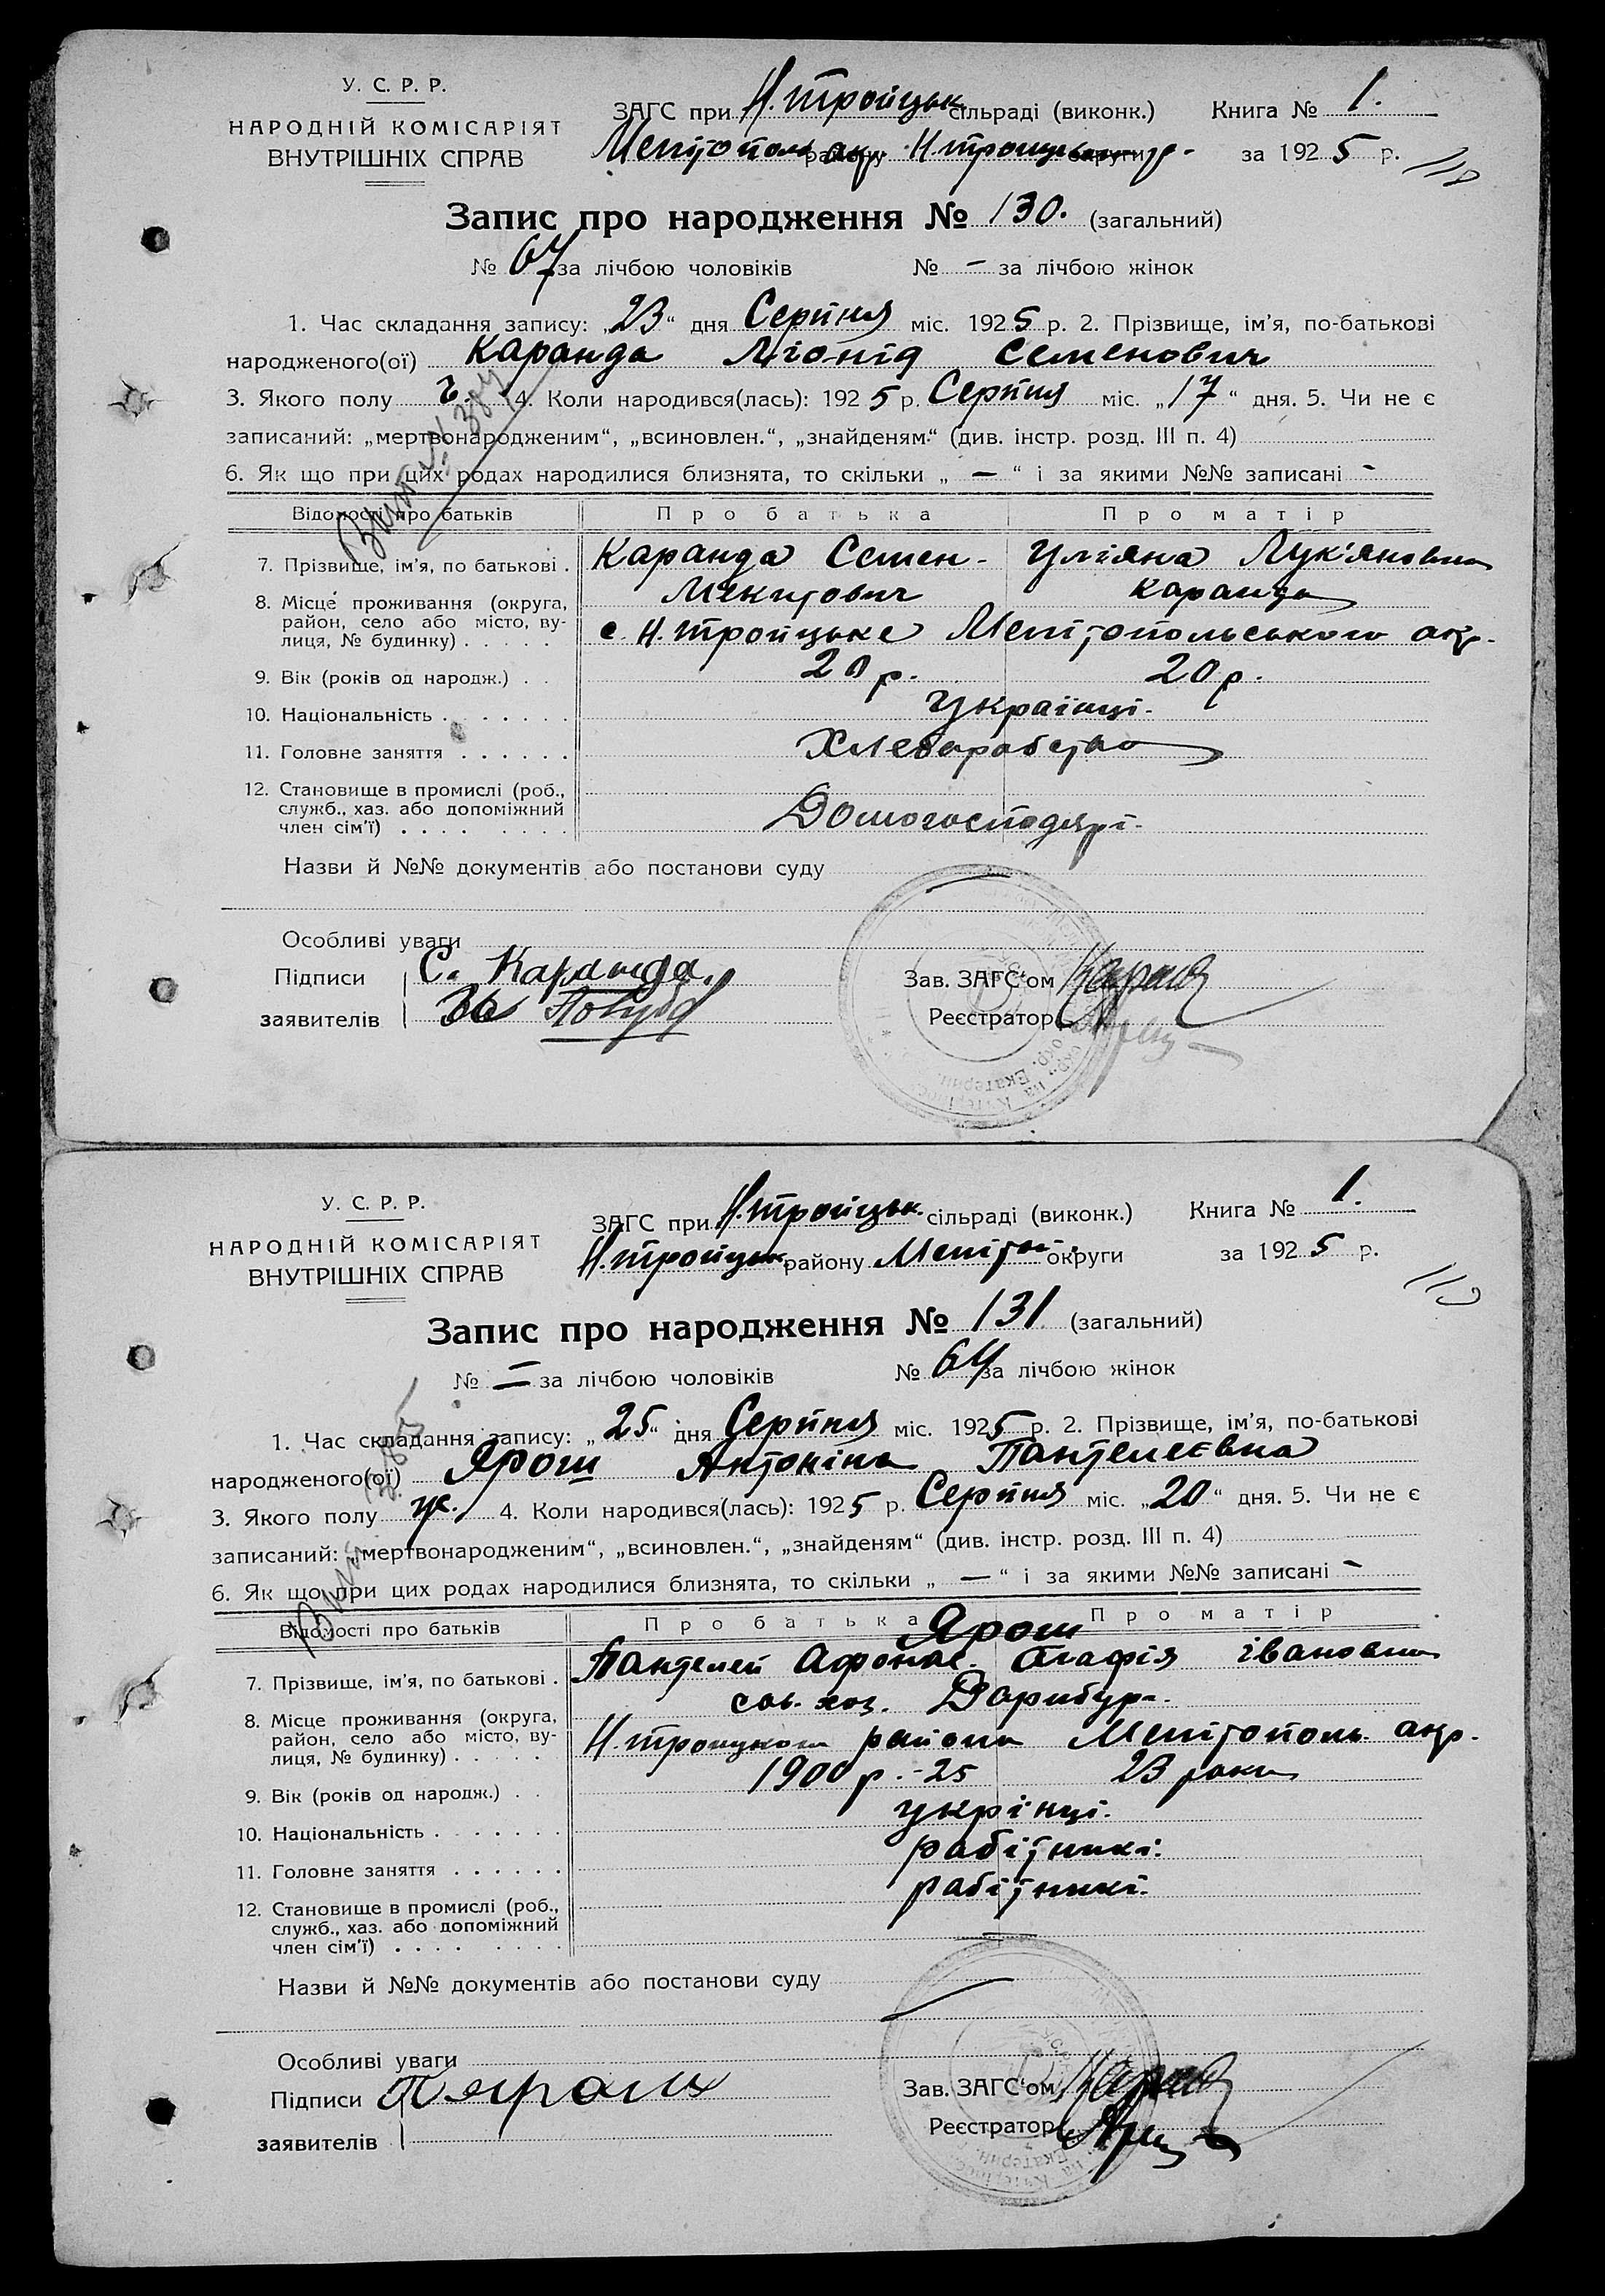 У. С. Р. Р.
НАРОДНІЙ КОМІСАРІЯТ
ВНУТРІШНІХ СПРАВ
ЗАГС при Н. Тройцьк. сільраді (виконк.) Книга № 1.
Мелітополь окр. району Н. Троицького округи р. за 1925 р.
118
Запис про народження № 130. (загальний)
№ 67 за лічбою чоловіків № — за лічбою жінок
1. Час складання запису: „23“ дня Серпня міс. 1925 р. 2. Прізвище, ім'я, по-батькові
народженого(ої) Каранда Ліонід Семенович
3. Якого полу ч. 4. Коли народився(лась): 1925 р. Серпня міс. „17“ дня. 5. Чи не є
записаний: „мертвонародженим“, „всиновлен.“, „знайденям“ (див. інстр. розд. III п. 4)
6. Як що при цих родах народилися близнята, то скільки „ — “ і за якими №№ записані -
Відомості про батьків Про батька Про матір
7. Прізвище, ім'я, по батькові . Каранда Семен- Уліяна Лук'яновна
Мекитович Каранда
8. Місце проживання (округа,
район, село або місто, ву-
лиця, № будинку) . . . . . с. Н. Тройцьке Мелітопольського окр.
9. Вік (років од народж.) . . 20 р. 20 р.
10. Національність . . . . . . . Українці.
11. Головне заняття . . . . . . Хлеборобство
12. Становище в промислі (роб.,
служб., хаз. або допоміжний
член сім'ї) . . . . . . . . Домогосподарі.
Назви й №№ документів або постанови суду
Особливі уваги
Підписи С. Каранда. Зав. ЗАГС'ом
заявителів Реєстратор
У. С. Р. Р.
НАРОДНІЙ КОМІСАРІЯТ
ВНУТРІШНІХ СПРАВ
ЗАГС при Н. Тройцьк. сільраді (виконк.) Книга № 1.
Н. Тройцьк району Меліт. округи за 1925 р.
119
Запис про народження № 131 (загальний)
№ — за лічбою чоловіків № 64 за лічбою жінок
1. Час складання запису: „25“ дня Серпня міс. 1925 р. 2. Прізвище, ім'я, по-батькові
народженого(ої) Ярош Антоніна Пантелеєвна
3. Якого полу ж. 4. Коли народився(лась): 1925 р. Серпня міс. „20“ дня. 5. Чи не є
записаний: „мертвонародженим“, „всиновлен.“, „знайденям“ (див. інстр. розд. III п. 4)
6. Як що при цих родах народилися близнята, то скільки „ — “ і за якими №№ записані -
Відомості про батьків Про батька Про матір
Ярош
7. Прізвище, ім'я, по батькові . Пантелей Афонас. Агафія Івановна
8. Місце проживання (округа,
район, село або місто, ву-
лиця, № будинку) . . . . . сов. хоз. Дарибур.
Н. Троицком району Мелітополь. окр.
9. Вік (років од народж.) . . 1900 р. - 25 23 роки
10. Національність . . . . . . . укрінці.
11. Головне заняття . . . . . . рабітникі.
12. Становище в промислі (роб.,
служб., хаз. або допоміжний
член сім'ї) . . . . . . . . рабітникі.
Назви й №№ документів або постанови суду
Особливі уваги
Підписи П Ярош Зав. ЗАГС'ом
заявителів Реєстратор